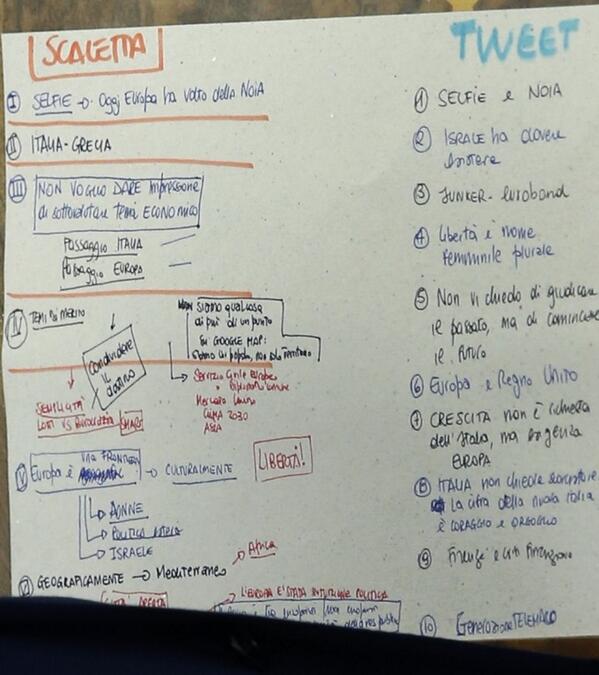 SCALETTA
I SELFIE → Oggi Europa ha volto della NOIA
II ITALIA-GRECIA
III NON VOGLIO DARE impressione
di sottovalutare temi ECONOMICO
PASSAGGIO ITALIA
PASSAGGIO EUROPA
IV TEMI DI MERITO
CONDIVIDERE
IL
destino
siamo qualcosa
di più di un punto
su GOOGLE MAP:
siamo un popolo, non solo territorio
Servizio Civile Europeo
CLIMA 2030
ASIA
SEMPLICITÀ
vs Burocrazia SMART
V Europa è una FRONTIERA → CULTURALMENTE
LIBERTÀ!
→ DONNE
→ POLITICA ESTERA
→ ISRAELE
VI GEOGRAFICAMENTE → Mediterraneo
→ Africa
L'EUROPA È STATA INTUIZIONE POLITICA
TWEET
1 SELFIE e NOIA
2 ISRAELE ha dovere
esistere
3 JUNKER - eurobond
4 Libertà è nome
femminile plurale
5 Non vi chiedo di giudicare
il passato, ma di cominciare
il futuro
6 Europa e Regno Unito
7 CRESCITA non è richiesta
dell'Italia, ma esigenza
EUROPA
8 ITALIA non chiede scorciatoie
La cifra della nuova Italia
è CORAGGIO e ORGOGLIO
9 Firenze
10 Generazione TELEMACO